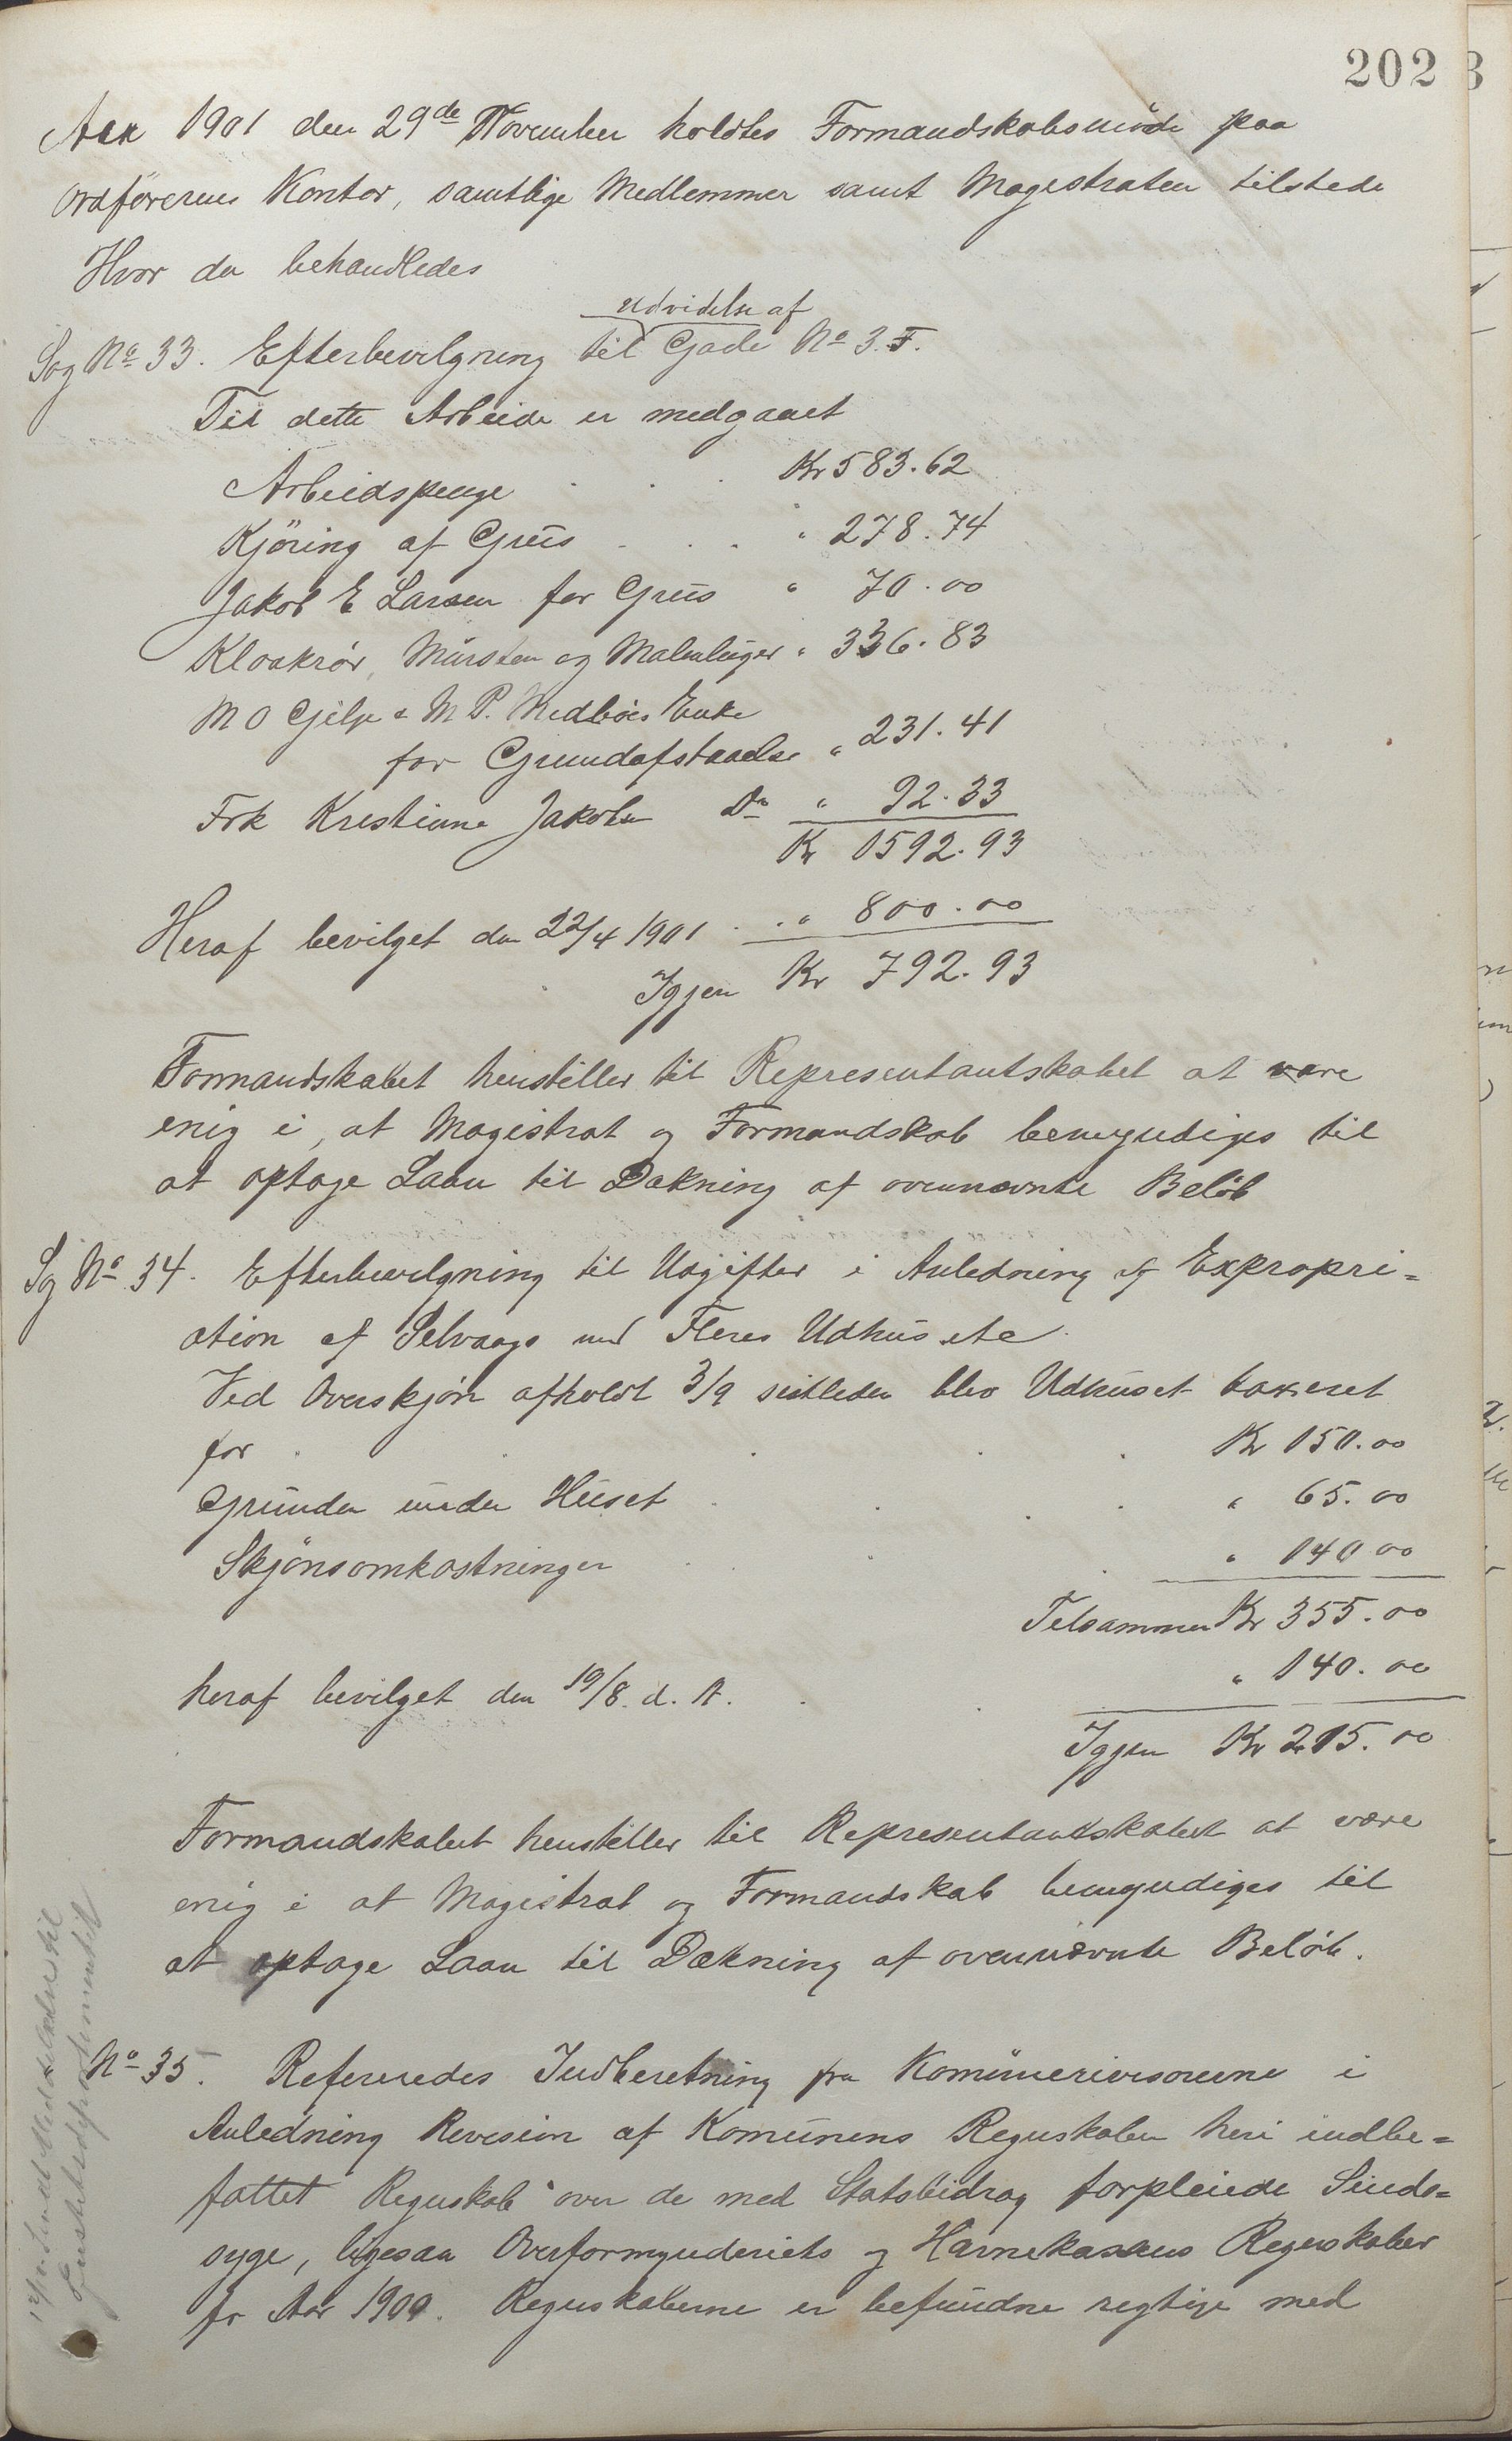 202
Aar 1901 den 29de November holdtes Formandskabsmöde paa
Ordförerens Kontor, samtlige Medlemmer samt Magistraten tilstede
Hvor da behandledes
udvidelse af
Sag No 33. Efterbevilgning til Gade No 3. F.
Til dette Arbeide er medgaaet
Arbeidspenge . . . Kr 583.62
Kjöring af Grus . . . " 278.74
Jakob E Larsen for Grus " 70.00
Kloakrör, Mursten og " 336.83
M O Gjelje & M P. Enke
for Grundafstaaelse " 231.41
Frk Kristiane Jakobsen Do " 92.33
Kr 1592.93
Heraf bevilget den 22/4 1901 . . " 800.00
Igjen Kr 792.93
Formandskabet henstiller til Representantskabet at være
enig i, at Magistrat og Formandskab bemyndiges til
at optage Laan til Dækning af ovennævnte Belöb
Sag No 34. Efterbevilgning til Udgifter i Anledning af Expropri=
ation af Selvaags med Fleres Udhus etc.
Ved Overskjön afholdt 3/9 sidstleden blev Udhuset taxeret
for . . . . . Kr 150.00
Grunden under Huset . . . . " 65.00
Skjönsomkostninger . . . " 140.00
Tilsammen Kr 355.00
heraf bevilget den 19/8 d. A. . . " 140.00
Igjen Kr 215.00
Formandskabet henstiller til Representantskabet at være
enig i at Magistrat og Formandskab bemyndiges til
at optage Laan til Dækning af ovennævnte Belöb.
No 35. Refereredes Indberetning fra Kommunerevisorerne i
Anledning Revision af Komunens Regnskaber heri indbe=
fattet Regnskab over de med Statsbidrag forpleiede Sinds=
syge, ligesaa Overformynderiets og Havnekassens Regnskaber
for Aar 1900. Regnskaberne er befundne rigtige med
Sendt Meddelelse til
Justitsdepartementet